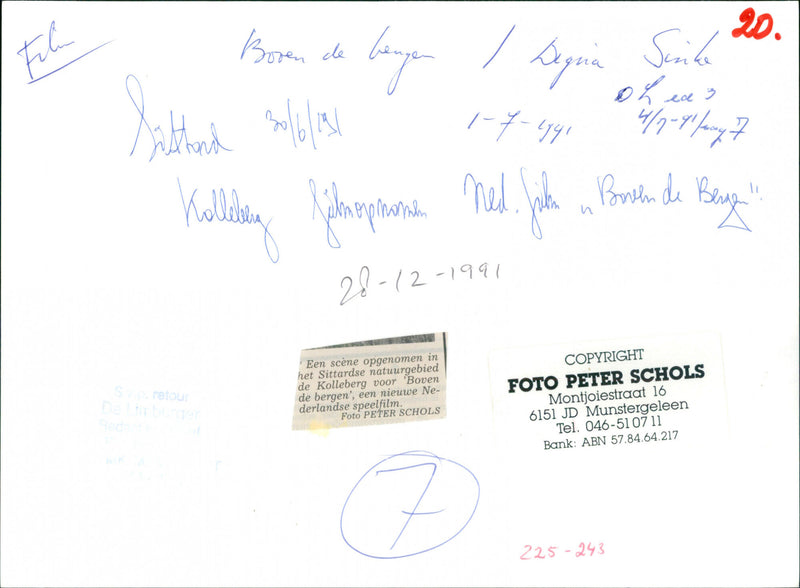 20.
Film
Boven de bergen / Digna Sinke
Sittard 30/6/191 1-7-1991 4/7-91/ 7
Kolleberg filmopnamen Ned. film „Boven de Bergen"
28-12-1991
Een scène opgenomen in
het Sittardse natuurgebied
de Kolleberg voor 'Boven
de bergen', een nieuwe Ne-
derlandse speelfilm.
Foto PETER SCHOLS
COPYRIGHT
FOTO PETER SCHOLS
Montjoiestraat 16
6151 JD Munstergeleen
Tel. 046-510711
Bank: ABN 57.84.64.217
S.v.p. retour
De Limburger
7
225-243